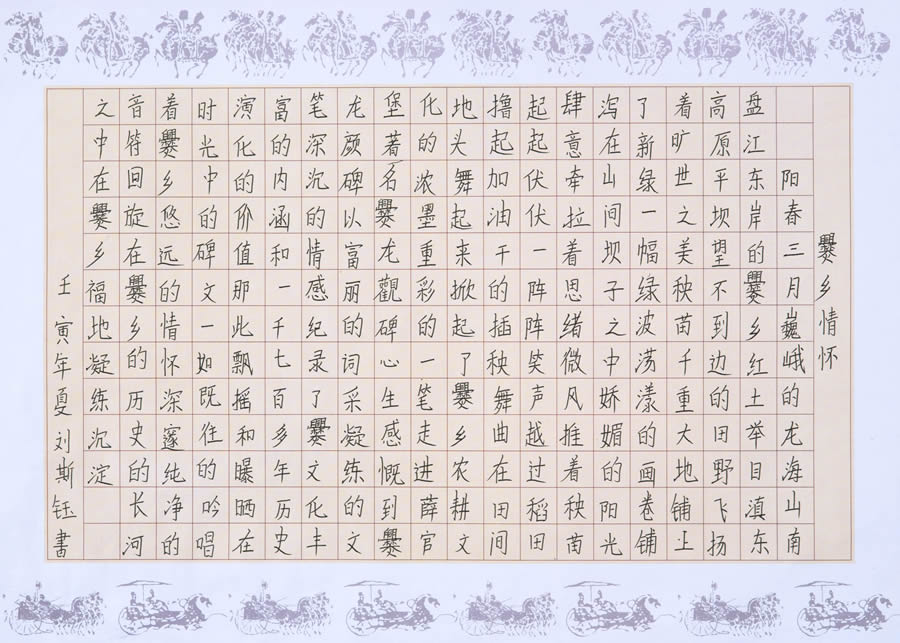 爨乡情怀
阳春三月巍峨的龙海山南
盘江东岸的爨乡红土举目滇东
高原平坝望不到边的田野飞扬
着旷世之美秧苗千重大地铺上
了新绿一幅绿波荡漾的画卷铺
泻在山间坝子之中娇媚的阳光
肆意牵拉着思绪微风推着秧苗
起起伏伏一阵阵笑声越过稻田
撸起加油干的插秧舞曲在田间
地头舞起来掀起了爨乡农耕文
化的浓墨重彩的一笔走进薛官
堡著名爨龙觀碑心生感慨到爨
龙颜碑以富丽的词采凝练的文
笔深沉的情感纪录了爨文化丰
富的内涵和一千七百多年历史
演化的价值那此飘摇和曝晒在
时光中的碑文一如既往的吟唱
着爨乡悠远的情怀深邃纯净的
音符回旋在爨乡的历史的长河
之中在爨乡福地凝练沉淀
壬寅年夏刘斯钰書